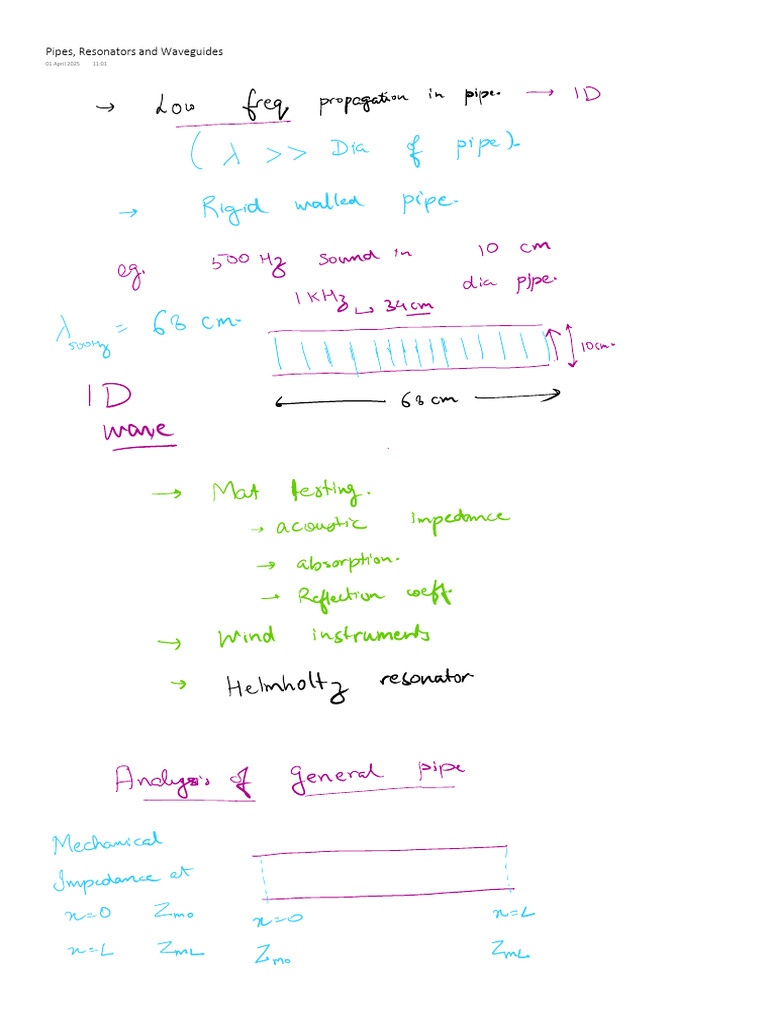 Pipes, Resonators and Waveguides
01 April 2025 11:01
→ Low freq propagation in pipe. → 1D
( λ >> Dia of pipe).
→ Rigid walled pipe.
eg. 500 Hz sound in 10 cm
dia pipe.
1 KHz ↳ 34 cm
λ500Hz = 68 cm.
10cm.
1D
wave
68 cm
→ Mat testing.
→ acoustic impedance
→ absorption.
→ Reflection coeff.
→ Wind instruments
→ Helmholtz resonator
Analysis of general pipe
Mechanical
Impedance at
x=0 Zmo
x=L ZmL
x=0 x=L
Zmo ZmL